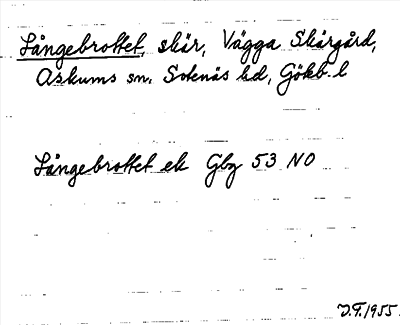 Långebrottet, skär, Vägga Skärgård,
Askums sn. Sotenäs hd, Gökb. l
Långebrottet ek Gbg 53 NO
J.F. 1955.